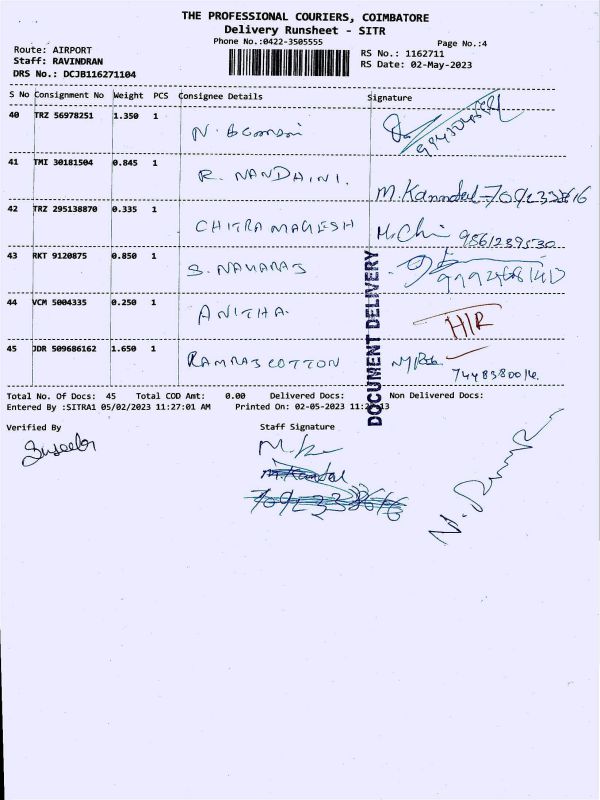 THE PROFESSIONAL COURIERS, COIMBATORE
Delivery Runsheet - SITR
Phone No.:0422-3505555
Page No.:4
Route: AIRPORT
Staff: RAVINDRAN
DRS No.: DCJB116271104
RS No.: 1162711
RS Date: 02-May-2023
S No Consignment No Weight PCS Consignee Details Signature
40 TRZ 56978251 1.350 1 N.
41 TMI 30181504 0.845 1 R. NANDHINI. M.Kanndal 7092338616
42 TRZ 295138870 0.335 1 CHITRA MAGESH M.Chi 9861289530
43 RKT 9120875 0.850 1 S. NAGARAJ
44 VCM 5004335 0.250 1 ANITHA. HIR
45 JDR 509686162 1.650 1 RAMRAJ COTTON 7448380014.
DOCUMENT DELIVERY
Total No. Of Docs: 45 Total COD Amt: 0.00 Delivered Docs: Non Delivered Docs:
Entered By :SITRA1 05/02/2023 11:27:01 AM Printed On: 02-05-2023 11:27:13
Verified By Staff Signature